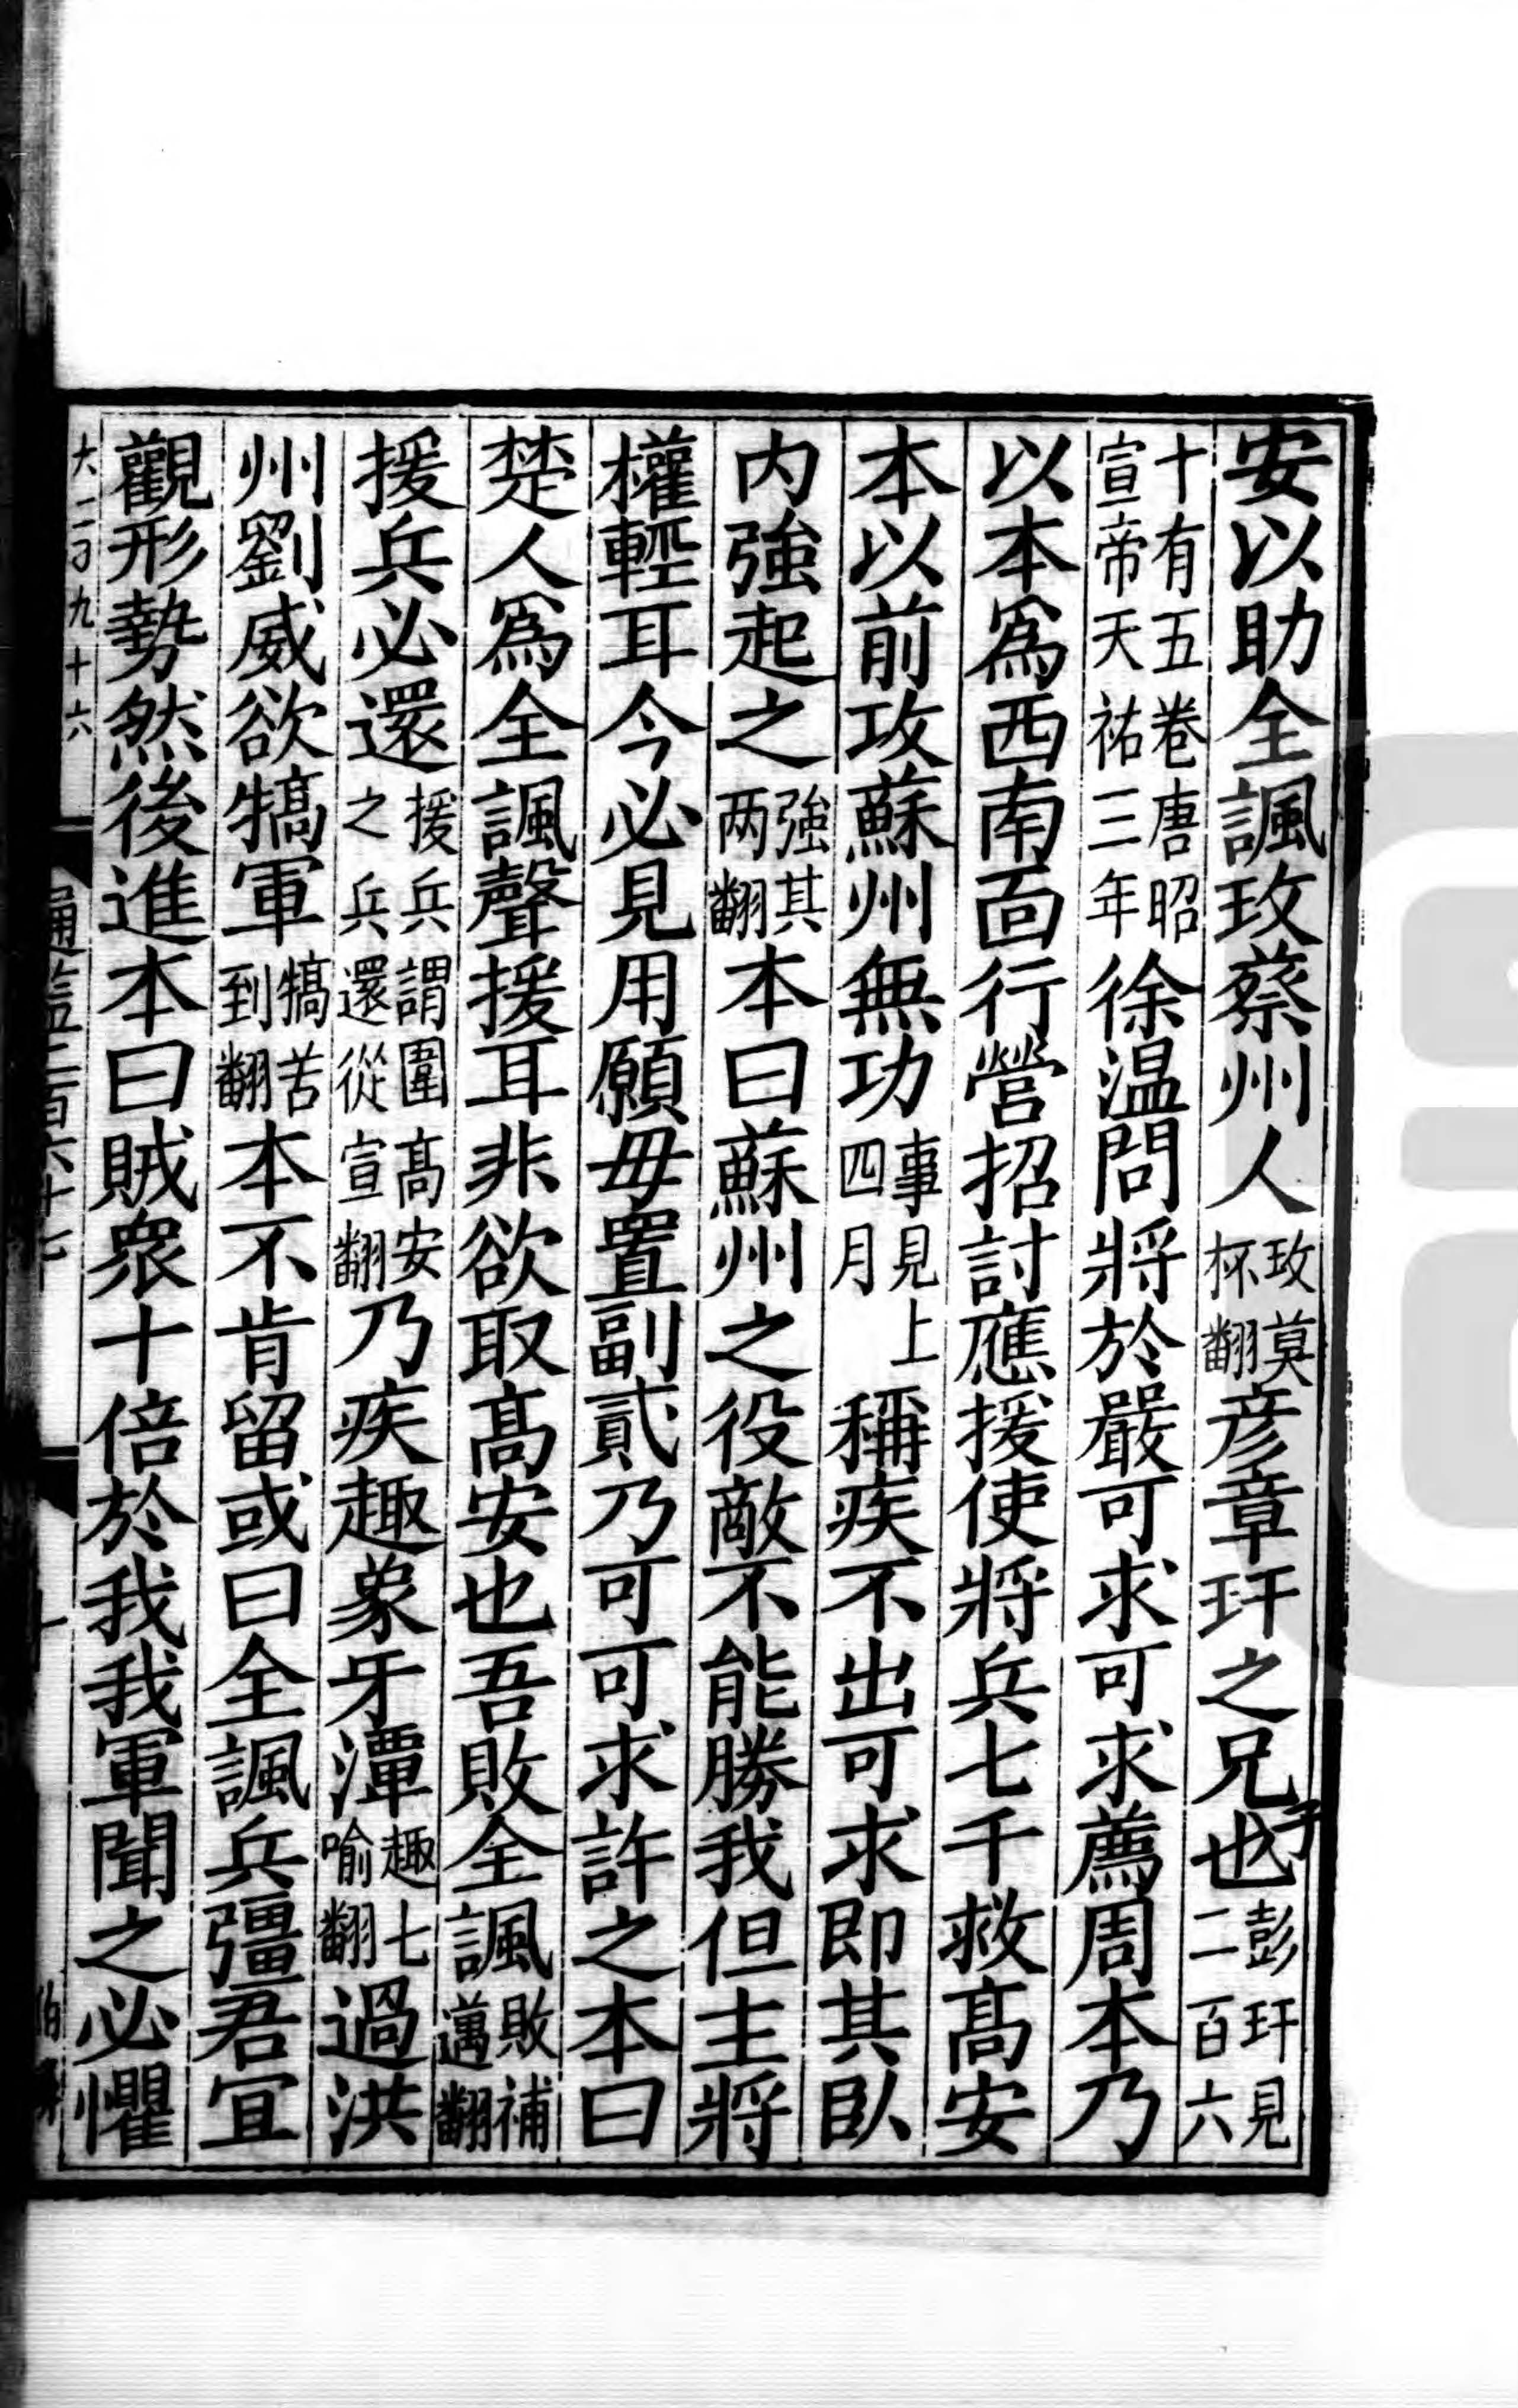 安以助全諷玫蔡州人玫莫杯翻彦章玕之兄也子彭玕見二百六
十有五卷唐昭宣帝天祐三年徐温問將於嚴可求可求薦周本乃
以本爲西南面行營招討應援使將兵七千救髙安
本以前攻蘇州無功事見上四月稱疾不出可求即其臥
内強起之強其两翻本曰蘇州之役敵不能勝我但主將
權輕耳今必見用願毋置副貳乃可可求許之本曰
楚人爲全諷聲援耳非欲取髙安也吾敗全諷敗補邁翻
援兵必還援兵謂圍髙安之兵還從宣翻乃疾趣象牙潭趣七喻翻過洪
州劉威欲犒軍犒苦到翻本不肯留或曰全諷兵彊君宜
觀形勢然後進本曰賊衆十倍於我我軍聞之必懼
大二百九十六
通鑑二百六十七